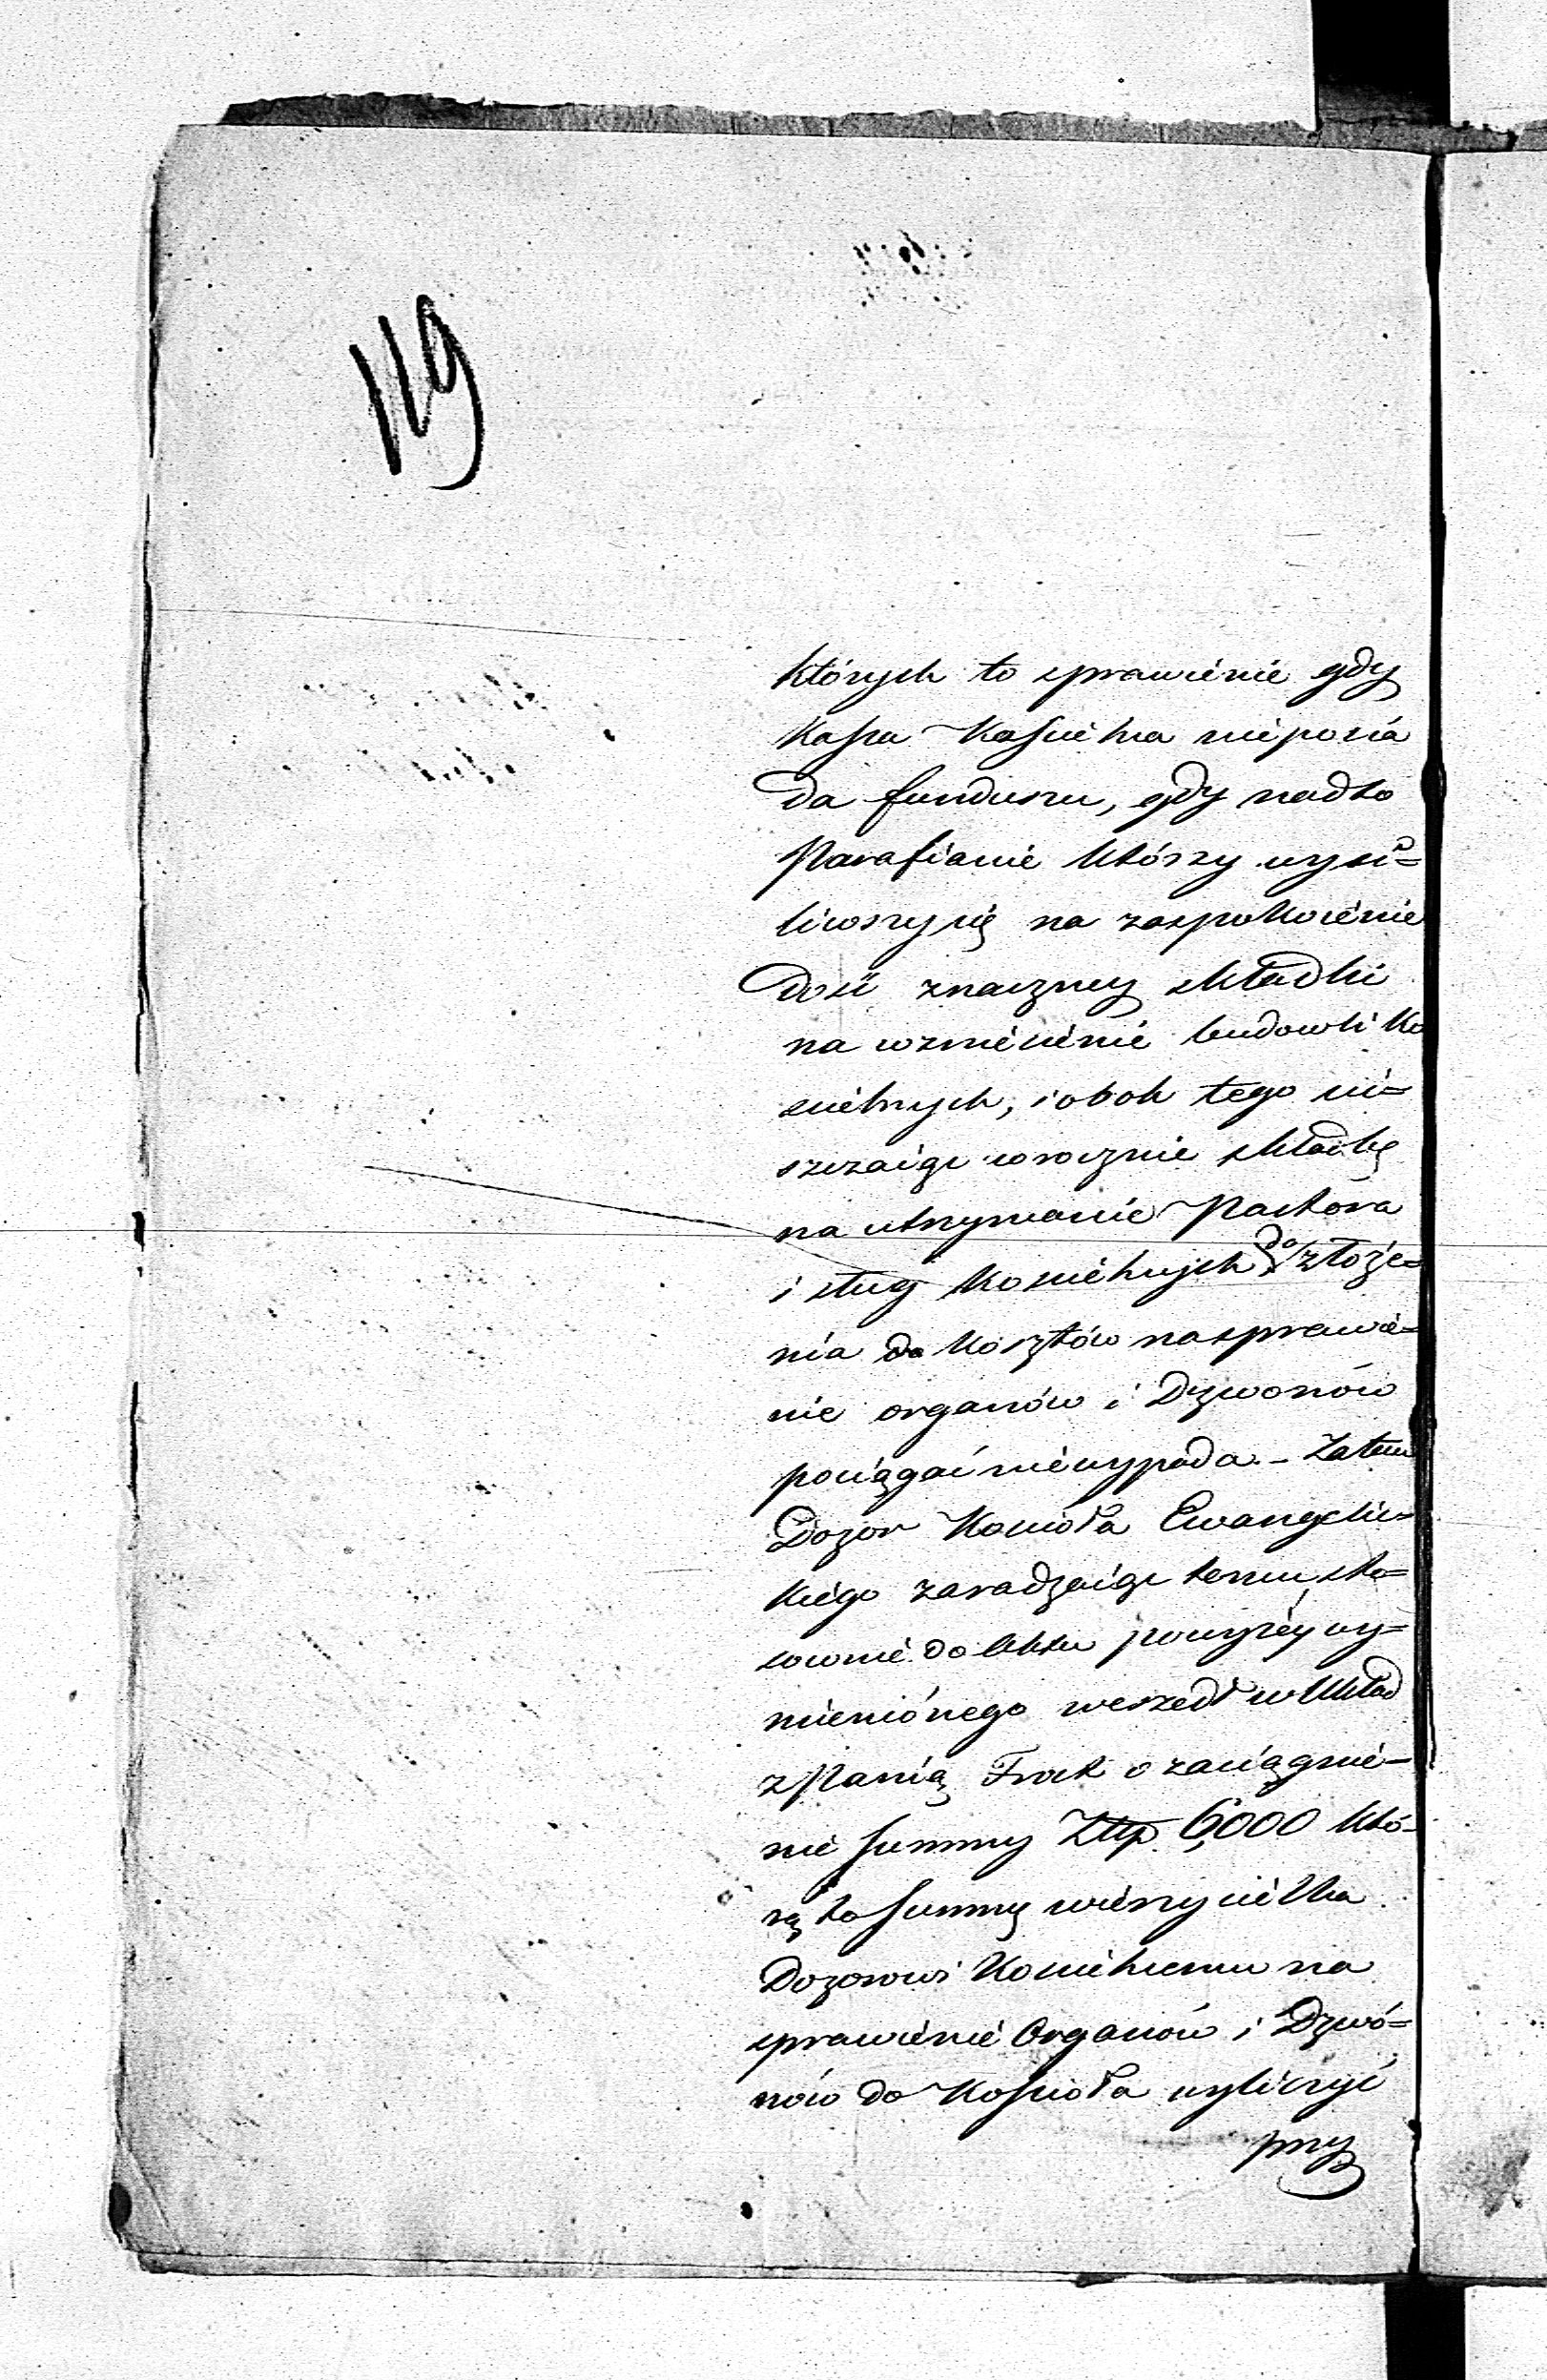 119
których to sprawienie gdy
Kassa Kościelna nieposia
da funduszu, gdy nadto
Parafianie którzy wysi=
liwszy się na zaspokoienie
dość znaczney składki
na wzniesienie budowli Ko
ścielnych, i obok tego ui=
szczaiąc corocznie składkę
na utrzymanie Pastora
i sług Kościelnych do złoże=
nia do kosztów na sprawie=
nie organów i Dzwonów
pociągać niewypada. - Zatem
Dozor Kościoła Ewangelic=
kiego zaradzaiąc temu sto=
sownie do Aktu powyżéy wy=
mieniónego wszedł w Układ
z Panią o zaciągnie=
nie Summy Złłp. 6,000 któ=
rą to Summę wierzycielka
Dozorowi Kościelnemu na
sprawienie Organów i Dzwó=
nów do Kościoła wyliczyć
przy